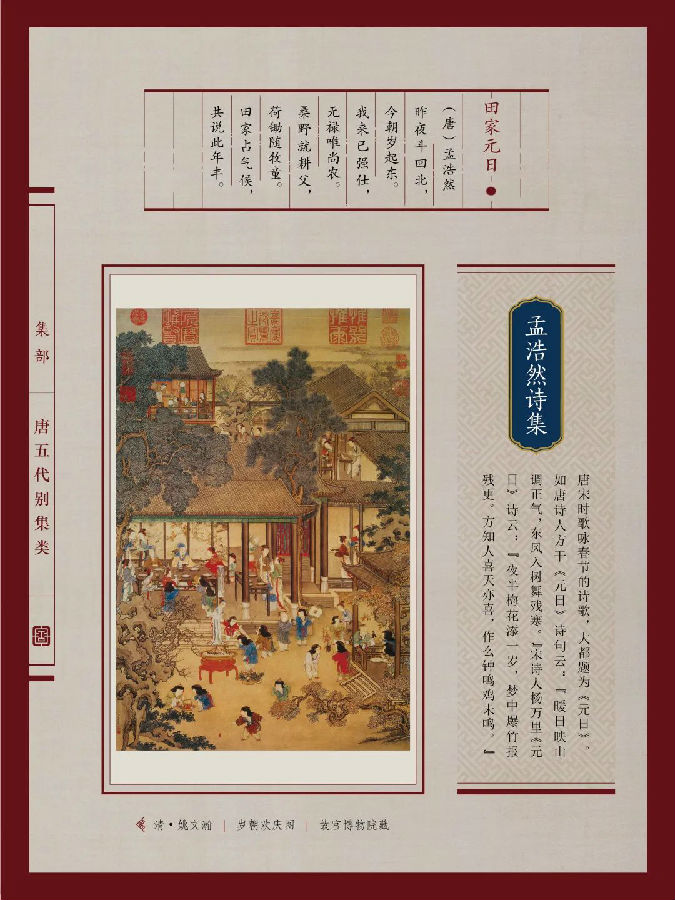 田家元日
（唐）孟浩然
昨夜斗回北，
今朝岁起东。
我来已强仕，
无禄唯尚农。
桑野就耕父，
荷锄随牧童。
田家占气候，
共说此年丰。
集部
唐五代别集类
孟浩然诗集
唐宋时歌咏春节的诗歌，大都题为《元日》。
如唐诗人方干《元日》诗句云，『暖日映山
调正气，东风入树舞残寒。』宋诗人杨万里《元
日》诗云，『夜半梅花添一岁，梦中爆竹报
残更。方知人喜天亦喜，作么钟鸣鸡未鸣。』
清·姚文瀚 | 岁朝欢庆图 | 故宫博物院藏